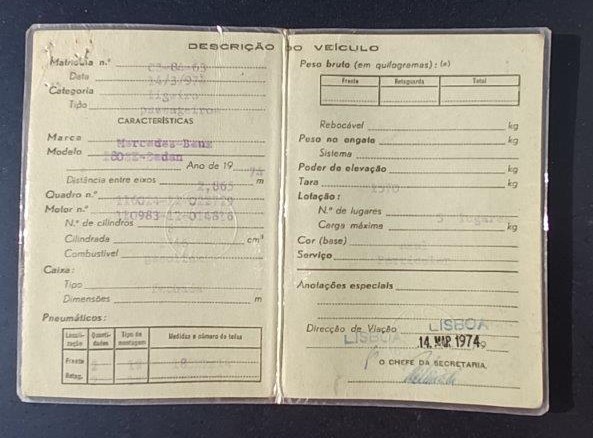 DESCRIÇÃO DO VEÍCULO
Matrícula n.º
Data 14/3/974
Categoria ligeiro
Tipo passageiros
CARACTERÍSTICAS
Marca Mercedes-Benz
Modelo Sedan
Ano de 19 74
Distância entre eixos 2,865 m
Quadro n.º
Motor n.º 110983-12-014816
N.º de cilindros
Cilindrada cm³
Combustível
Caixa:
Tipo fechada
Dimensões m
Pneumáticos:
Locali- zação Quanti- dades Tipo de montagem Medidas e número de telas
Frente
Retag.
Peso bruto (em quilogramas): (a)
Frente Retaguarda Total
Rebocável kg
Peso no engate kg
Sistema
Poder de elevação kg
Tara kg
Lotação:
N.º de lugares 5 lugares
Carga máxima kg
Cor (base)
Serviço Particular
Anotações especiais
Direcção de Viação LISBOA
LISBOA 14. MAR. 1974
O CHEFE DA SECRETARIA,